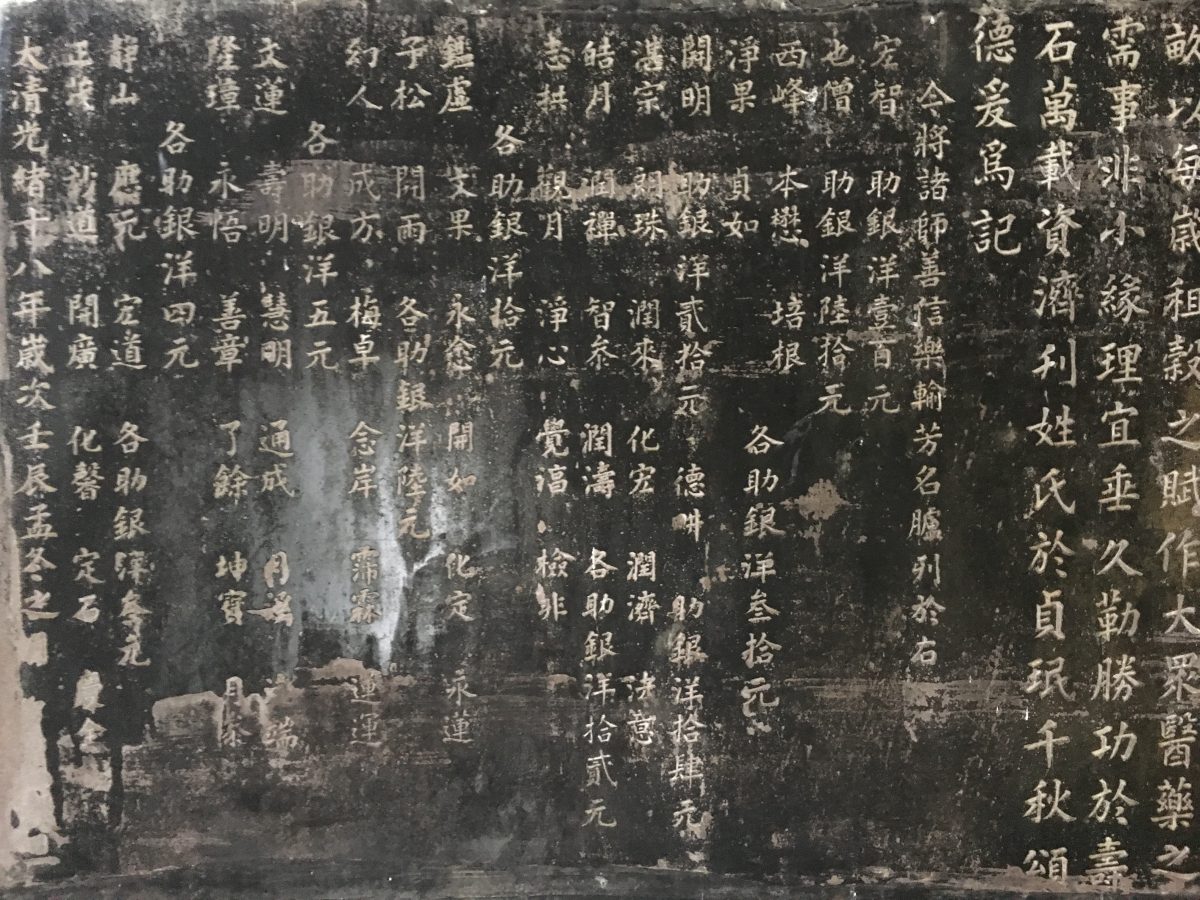 畝以每歲租穀之賦作大眾醫藥之
需事非小緣理宜垂久勒勝功於壽
石萬載資濟利姓氏於貞珉千秋頌
德爰為記
今將諸師善信樂輸芳名臚列於右
宏智 助銀洋壹百元
也僧 助銀洋陸拾元
西峰 本懋 培根 各助銀洋叁拾元
淨果 貞如
開明 助銀洋貳拾元 德畊 助銀洋拾肆元
湛宗 朗珠 潤來 化宏 潤濟 意
皓月 潤禪 智參 潤濤 各助銀洋拾貳元
志拱 觀月 淨心 覺 檢非
各助銀洋拾元
鑑盧 文果 永念 開如 化定 永蓮
予松 開雨 各助銀洋陸元
幻人 成方 梅卓 念岸 霈霖 運運
各助銀洋五元
文蓮 壽明 慧明 通成 月 端
隆璋 永悟 善章 了餘 坤寶 月
各助銀洋四元
靜山 應元 宏道 各助銀洋叁元
正 妙道 開廣 化馨 定石 全
大清光緒十八年歲次壬辰孟冬之